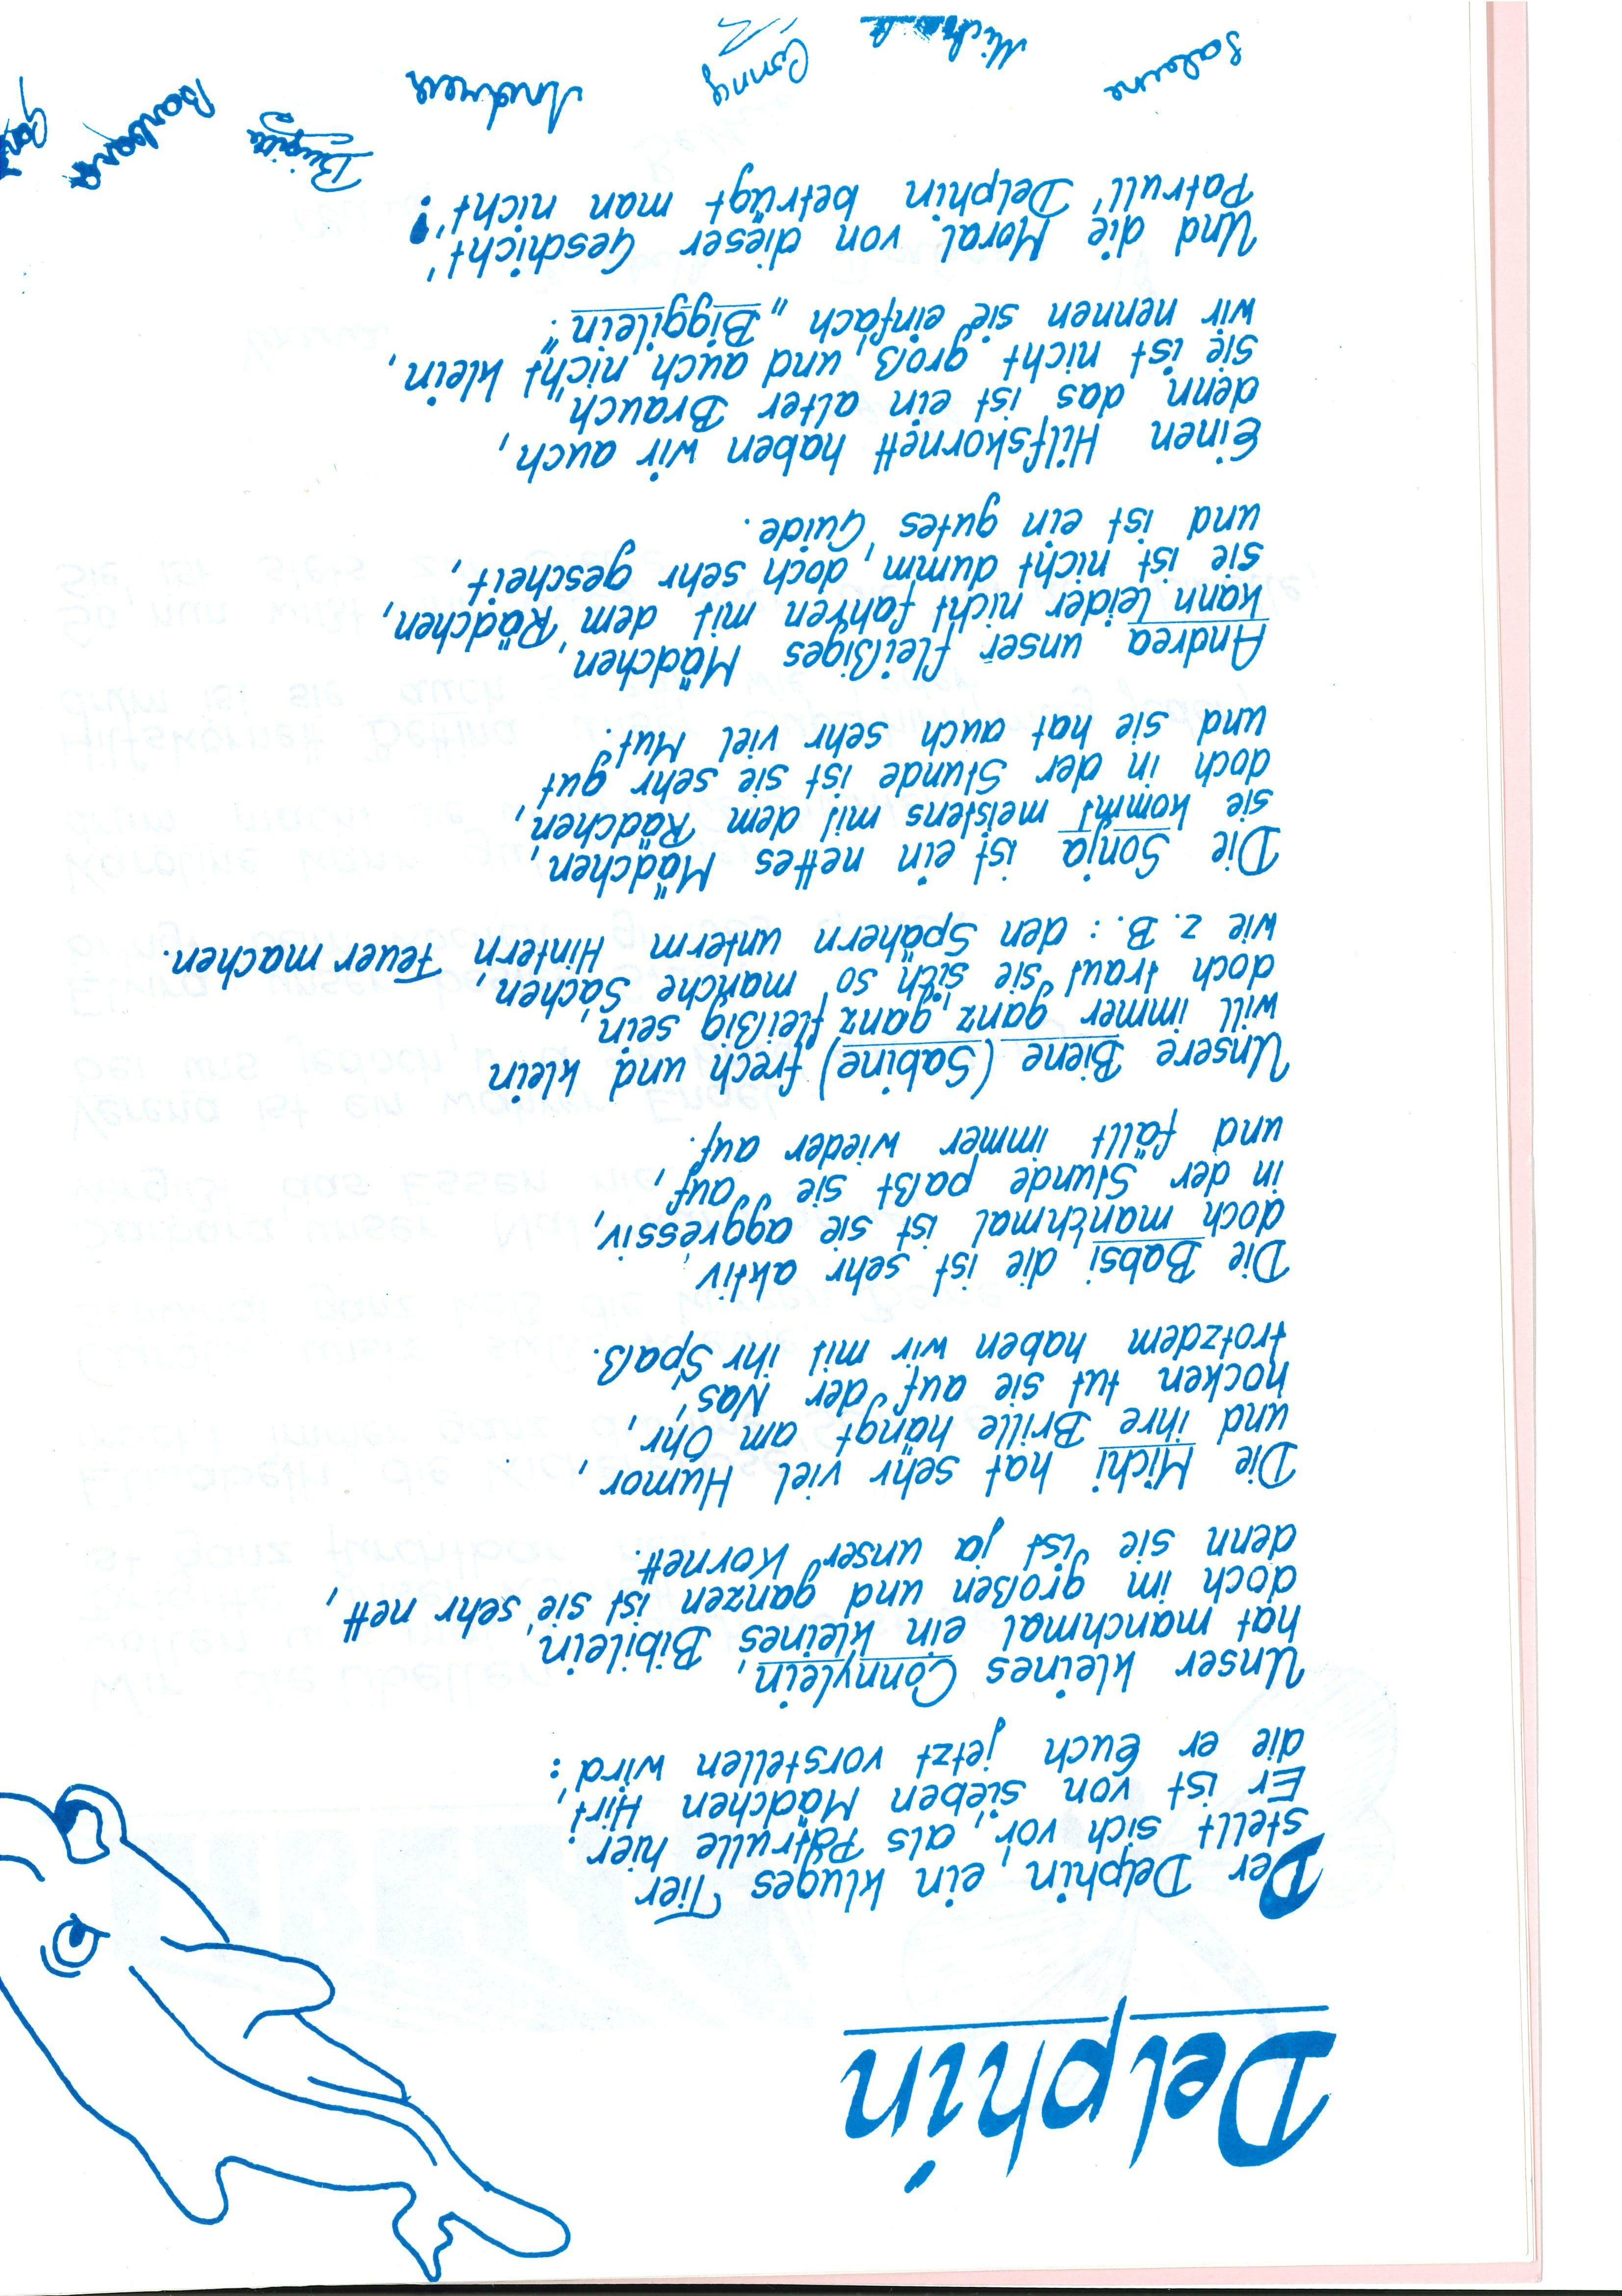 Delphin
Der Delphin, ein kluges Tier
stellt sich vor, als Patrulle hier.
Er ist von sieben Mädchen Hirt,
die er Euch jetzt vorstellen wird:
Unser kleines Connylein,
hat manchmal ein kleines Bibilein,
doch im großen und ganzen ist sie sehr nett,
denn sie ist ja unser Kornett.
Die Michi hat sehr viel Humor,
und ihre Brille hängt am Ohr,
hocken tut sie auf der Nas',
trotzdem haben wir mit ihr Spaß.
Die Babsi die ist sehr aktiv,
doch manchmal ist sie aggressiv,
in der Stunde paßt sie auf,
und fällt immer wieder auf.
Unsere Biene (Sabine) frech und klein
will immer ganz, ganz fleißig sein,
doch traut sie sich so manche Sachen,
wie z. B.: den Spähern unterm Hintern Feuer machen.
Die Sonja ist ein nettes Mädchen,
sie kommt meistens mit dem Rädchen,
doch in der Stunde ist sie sehr gut
und sie hat auch sehr viel Mut.
Andrea unser fleißiges Mädchen,
kann leider nicht fahren mit dem Rädchen,
sie ist nicht dumm, doch sehr gescheit,
und ist ein gutes Guide.
Einen Hilfskornett haben wir auch,
denn das ist ein alter Brauch,
sie ist nicht groß und auch nicht klein,
wir nennen sie einfach „Biggilein".
Und die Moral von dieser Geschicht',
Patrull' Delphin betrügt man nicht!
Sabine Conny Andrea Birgit Barbara